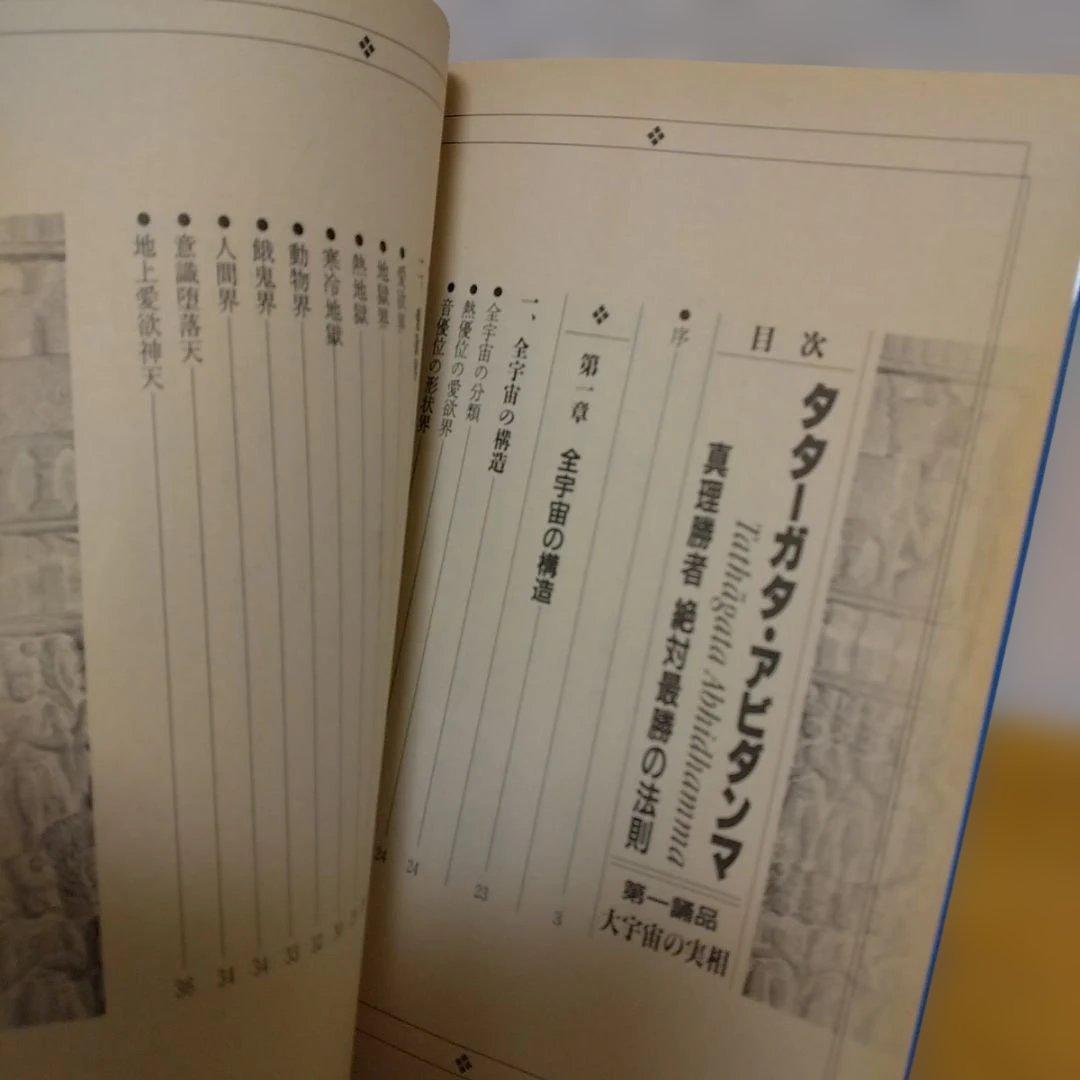 目次
タターガタ・アビダンマ
Tathāgata Abhidhamma
真理勝者 絶対最勝の法則
第一誦品
大宇宙の実相
●序 3
第一章 全宇宙の構造
一、全宇宙の構造
●全宇宙の分類 23
●熱優位の愛欲界 24
●音優位の形状界 24
●愛欲界
●地獄界
●熱地獄
●寒冷地獄
●動物界
●餓鬼界 33
●人間界 34
●意識堕落天 34
●地上愛欲神天 36